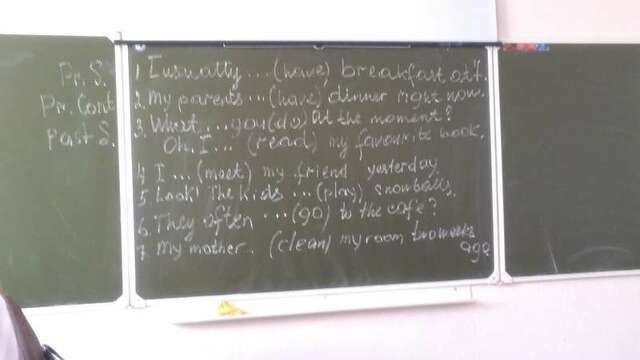 Pr. S.
Pr. Cont
Past S.
1. I usually ... (have) breakfast at 7.
2. My parents ... (have) dinner right now.
3. What ... you (do) at the moment?
Oh, I ... (read) my favourite book.
4. I ... (meet) my friend yesterday.
5. Look! The kids ... (play) snowballs.
6. They often ... (go) to the cafe?
7. My mother ... (clean) my room two weeks
ago